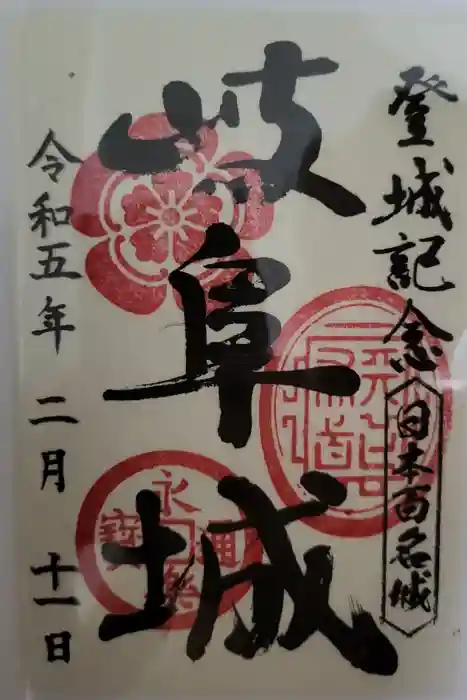 登城記念
日本百名城
岐阜城
永樂通寳
令和五年 二月 十一日